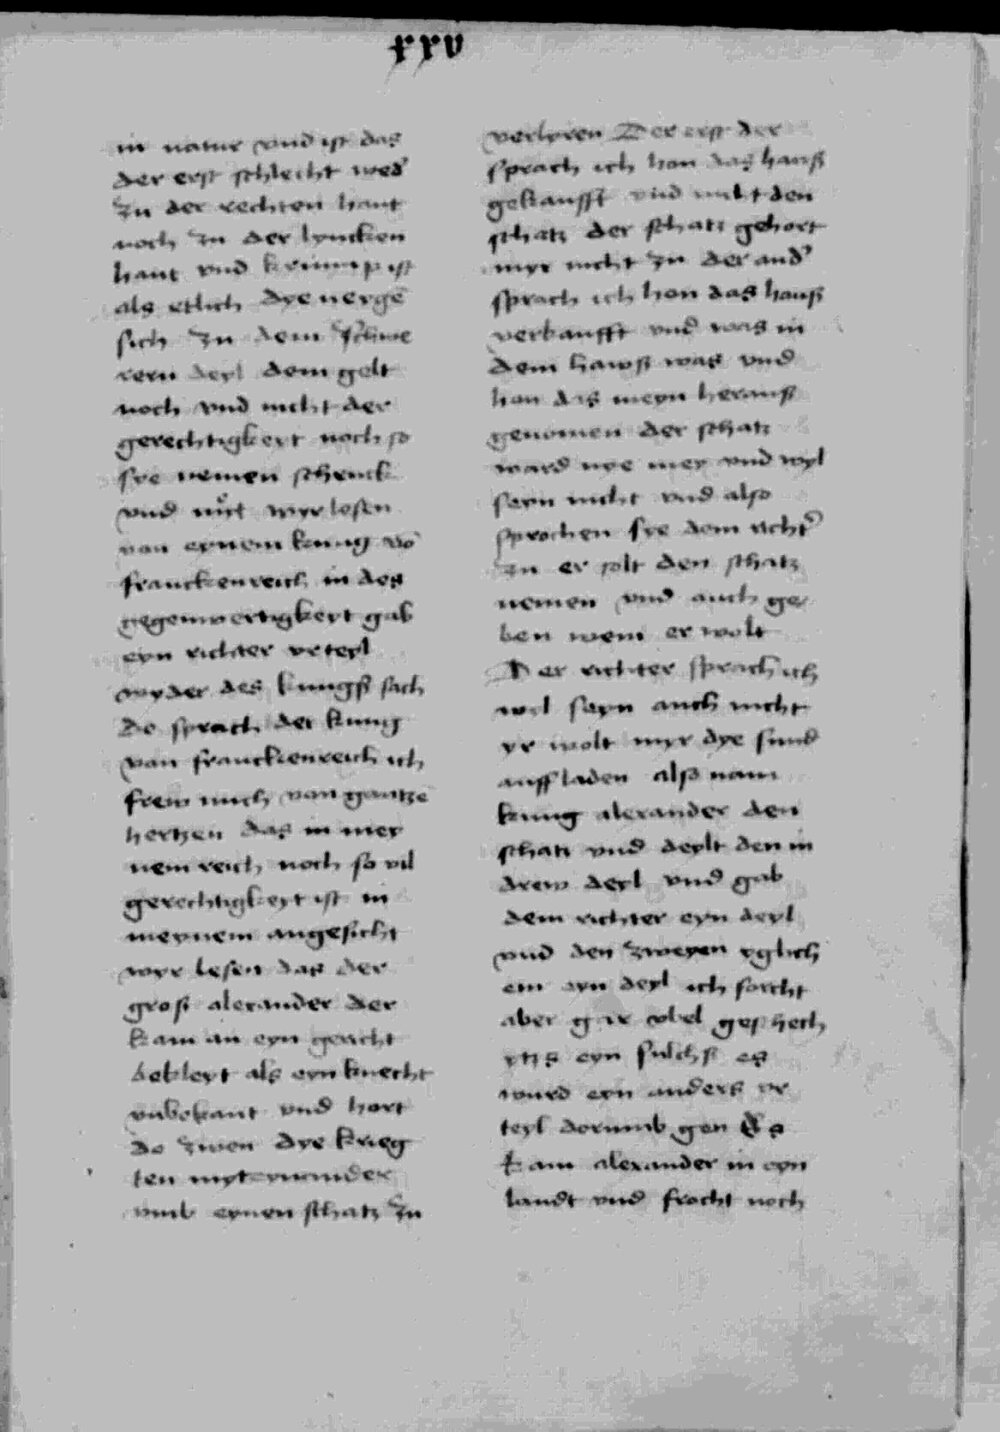 xxv
in natur vnd ist das
der erst schlecht wed'
zu der rechten hant
noch zu der lyncken
hant vnd krump ist
als etlich dye neyge
sich zu dem schwe
rern deyl dem gelt
noch vnd nicht der
gerechtigkeyt noch so
sye nemen schenck
vnd wyr lesen
von eynem kunig vō
franckenreich in des
gegenwertigkeyt gab
eyn richter vrteyl
wyder des kungß sach
do sprach der kunig
von franckenreich ich
frew mich von gantzē
hertzen das in mey
nem reich noch so vil
gerechtigkeyt ist in
meynem angesicht
wyr lesen das der
groß alexander der
kam an eyn gericht
bekleyt als eyn knecht
vnbekant vnd hort
do zwen dye krieg
ten myt eynander
vmb eynen schatz zu
verlyren Der erst der
sprach ich hon das hauß
gekaufft vnd nicht den
schatz der schatz gehort
myr nicht zu der and'
sprach ich hon das hauß
verkaufft vnd was in
dem hawß was vnd
hon das meyn herauß
genomen der schatz
ward nye mey vnd wyl
seyn nicht vnd also
sprochen sye dem richt'
zu er solt den schatz
nemen vnd auch ge
ben wem er wolt
Der richter sprach ich
wyl seyn auch nicht
yr wolt myr dye sund
auff laden also nam
kunig alexander den
schatz vnd deylt den in
drew deyl vnd gab
dem richter eyn deyl
vnd den zweyen yglich
em eyn deyl ich forcht
aber gar vbel geschech
ytzs eyn sulchß es
wurd eyn anders vr
teyl dorumb gen Es
kam alexander in eyn
landt vnd frocht noch